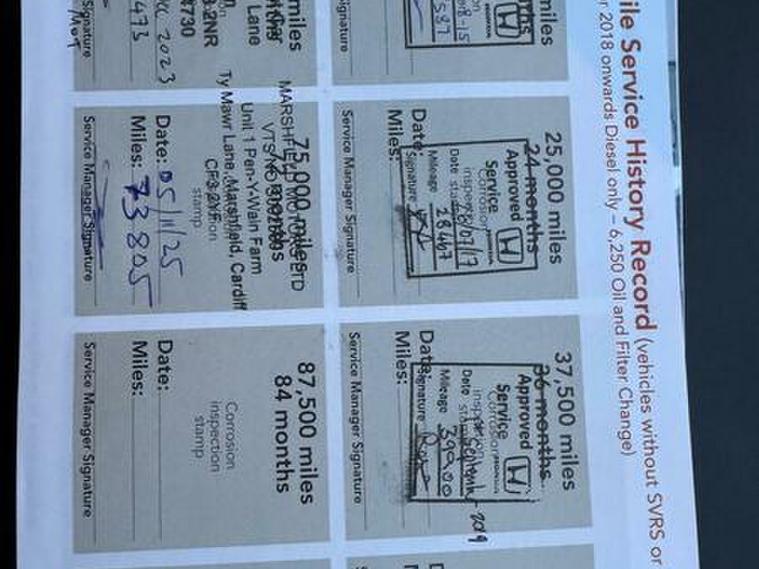 ile Service History Record (vehicles without SVRS or
r 2018 onwards Diesel only – 6,250 Oil and Filter Change)
miles
25,000 miles
24 months
Approved
Service
Corrosion
inspection
Date
Mileage 28467
Signature
Date:
Miles:
Service Manager Signature
37,500 miles
36 months
Approved
Service
Corrosion
inspection
Date September 2019
Mileage 39900
Signature
Date:
Miles:
Service Manager Signature
miles
Lane
2NR
730
2023
473
Signature
MOT
75,000 miles
MARSHFIELD MOTORS LTD
Unit 1 Pen-Y-Wain Farm
Ty Mawr Lane, Marshfield, Cardiff
CF3 2YF
stamp
Date: 05/11/25
Miles: 73805
Service Manager Signature
87,500 miles
84 months
Corrosion
inspection
stamp
Date:
Miles:
Service Manager Signature